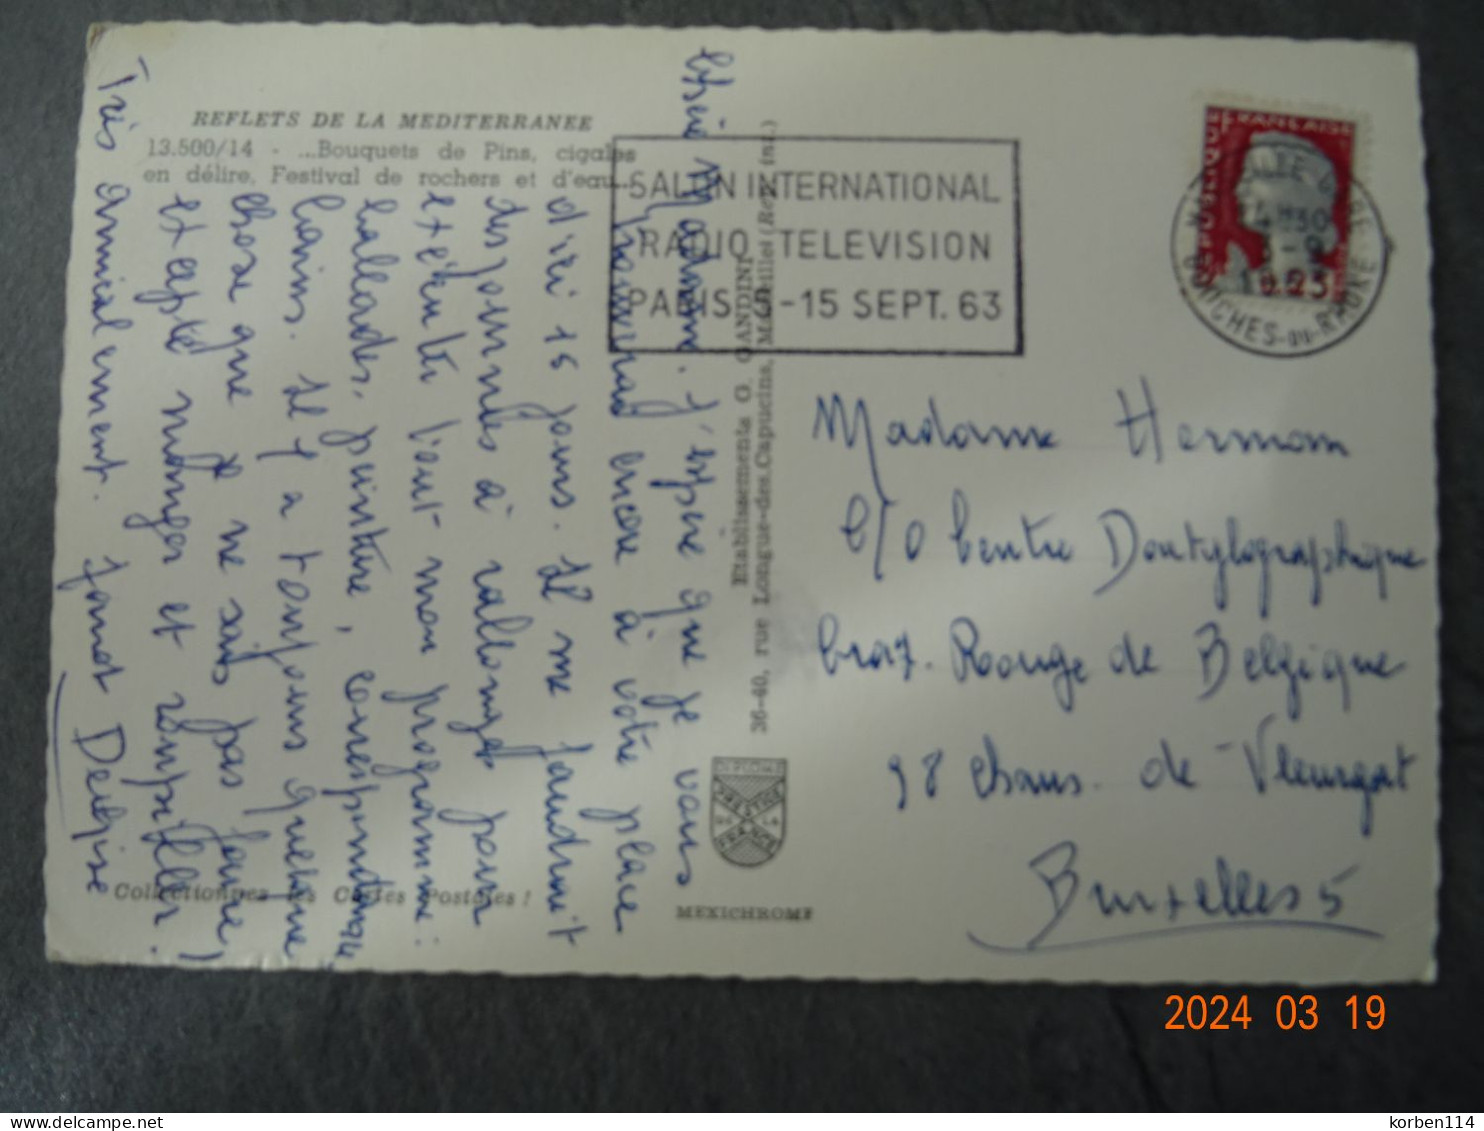 REFLETS DE LA MEDITERRANEE
13.500/14 - ...Bouquets de Pins, cigales
en délire, Festival de rochers et d'eau...
Chère Madame. J'espère que je vous
trouverai encore à votre place
d'ici 15 jours. Il me faudrait
des journées à rallonges pour
exécuter tout mon programme:
ballades, peinture, correspondance,
bains. Il y a toujours quelque
chose que je ne sais pas faire,
excepté manger et roupiller.
Très amicalement.
Collectionnez les Cartes Postales !
Etablissements G. GANDINI
36-40, rue Longue-des-Capucins, Marseille
DIPLOME
PRESTIGE
FRANCE
MEXICHROME
SALON INTERNATIONAL
RADIO TELEVISION
PARIS 5-15 SEPT. 63
FRANÇAISE
BOUCHES-DU-RHONE
Madame Hermam
c/o Centre Dactylographique
Croix Rouge de Belgique
98 Chaus. de Vleurgat
Bruxelles 5
2024 03 19
delcampe.net
korben114